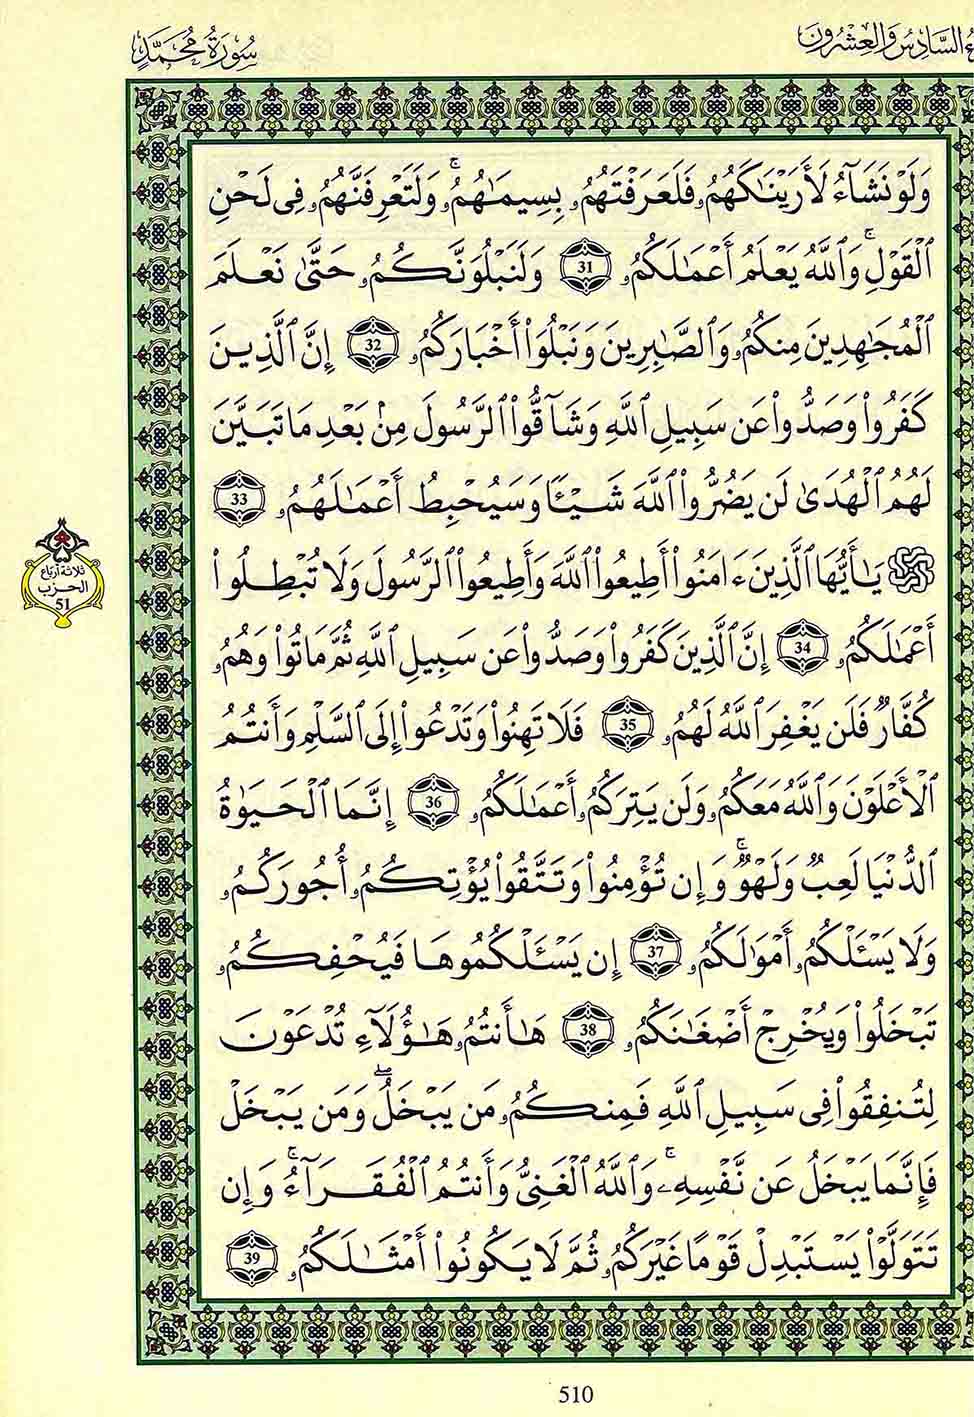 ءُ السَّادِسُ وَالْعِشْرُونَ
سُورَةُ مُحَمَّدٍ
وَلَوْ نَشَآءُ لَأَرَيْنَٰكَهُمُۥ فَلَعَرَفْتَهُمُۥ بِسِيمَٰهُمُۥۚ وَلَتَعْرِفَنَّهُمُۥ فِى لَحْنِ
اِ۬لْقَوْلِۚ وَاَللَّهُ يَعْلَمُ أَعْمَٰلَكُمُۥ 31 وَلَنَبْلُوَنَّكُمُۥ حَتَّىٰ نَعْلَمَ
اَ۬لْمُجَٰهِدِينَ مِنكُمُۥ وَالصَّٰبِرِينَ وَنَبْلُوَاْ أَخْبَارَكُمُۥ 32 إِنَّ اَ۬لَّذِينَ
كَفَرُواْ وَصَدُّواْ عَن سَبِيلِ اِ۬للَّهِ وَشَآقُّواْ اُ۬لرَّسُولَ مِنۢ بَعْدِ مَا تَبَيَّنَ
لَهُمُ اُ۬لْهُدَىٰ لَن يَضُرُّواْ اُ۬للَّهَ شَيْـًٔا وَسَيُحْبِطُ أَعْمَٰلَهُمُۥ 33
يَٰٓأَيُّهَا اَ۬لَّذِينَ ءَامَنُواْ أَطِيعُواْ اُ۬للَّهَ وَأَطِيعُواْ اُ۬لرَّسُولَ وَلَا تُبْطِلُواْ
أَعْمَٰلَكُمُۥ 34 إِنَّ اَ۬لَّذِينَ كَفَرُواْ وَصَدُّواْ عَن سَبِيلِ اِ۬للَّهِ ثُمَّ مَاتُواْ وَهُمُۥ
كُفَّارٌ فَلَن يَغْفِرَ اَ۬للَّهُ لَهُمُۥ 35 فَلَا تَهِنُواْ وَتَدْعُواْ إِلَى اَ۬لسَّلْمِ وَأَنتُمُ
اُ۬لْأَعْلَوْنَ وَاللَّهُ مَعَكُمُۥ وَلَن يَتِرَكُمُۥ أَعْمَٰلَكُمُۥ 36 إِنَّمَا اَ۬لْحَيَوٰةُ
اُ۬لدُّنْيَا لَعِبٌ وَلَهْوٌۚ وَإِن تُؤْمِنُواْ وَتَتَّقُواْ يُؤْتِكُمُۥ أُجُورَكُمُۥ
وَلَا يَسْـَٔلْكُمُۥ أَمْوَٰلَكُمُۥ 37 إِن يَسْـَٔلْكُمُوهَا فَيُحْفِكُمُۥ
تَبْخَلُواْ وَيُخْرِجْ أَضْغَٰنَكُمُۥ 38 هَٰٓأَنتُمُۥ هَٰٓؤُلَآءِ تُدْعَوْنَ
لِتُنفِقُواْ فِى سَبِيلِ اِ۬للَّهِ فَمِنكُمُۥ مَن يَبْخَلُۖ وَمَن يَبْخَلْ
فَإِنَّمَا يَبْخَلُ عَن نَّفْسِهِۦۚ وَاللَّهُ اُ۬لْغَنِىُّ وَأَنتُمُ اُ۬لْفُقَرَآءُۚ وَإِن
تَتَوَلَّوْاْ يَسْتَبْدِلْ قَوْمًا غَيْرَكُمُۥ ثُمَّ لَا يَكُونُواْ أَمْثَٰلَكُمُۥ 39
ثلاثة أرباع
الحزب
51
510